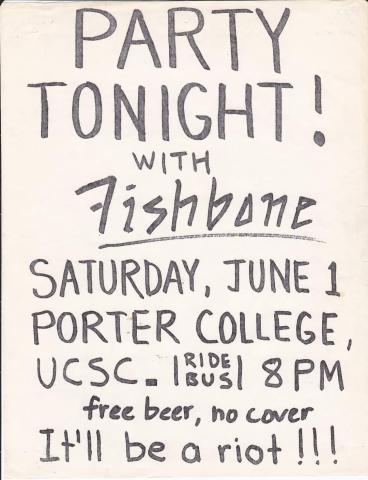 PARTY
TONIGHT!
WITH
Fishbone
SATURDAY, JUNE 1
PORTER COLLEGE,
UCSC. |RIDE BUS| 8 PM
free beer, no cover
It'll be a riot!!!